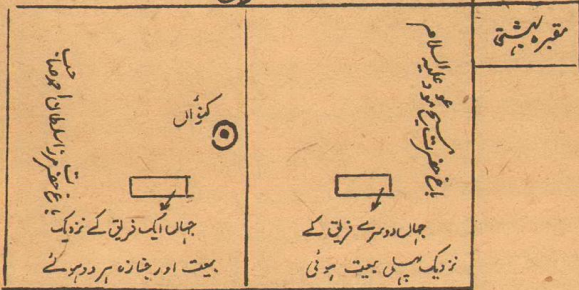 مقبرہ بہشتی
باغ حضرت مسیح موعود علیہ السلام
جہاں دوسرے فریق کے
نزدیک پہلی بیعت ہوئی
کنؤاں
باغ حضرت مرزا سلطان احمد صاحب
جہاں ایک فریق کے نزدیک
بیعت اور جنازہ ہر دو ہوئے